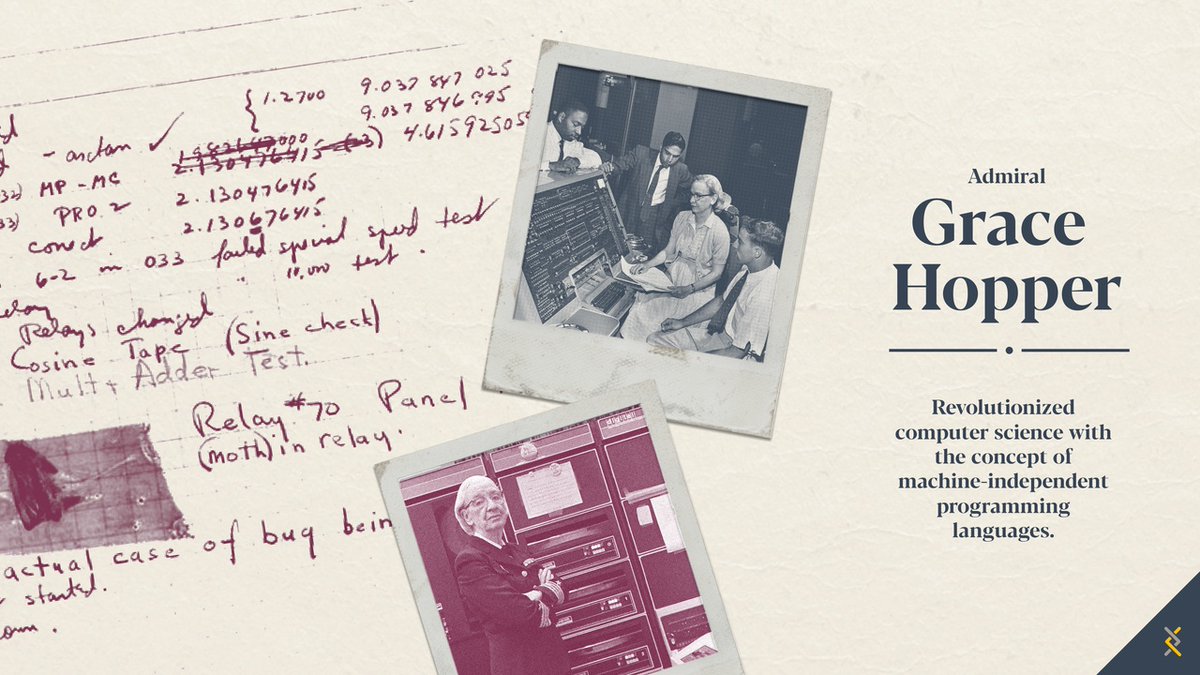 {1.2700 9.037 847 025
9.037 846 995
- arctan ✓ 1.982647000
2.130476415 (-3) 4.615925059
32) MP - MC 2.130476415
33) PRO. 2 2.130676415
conect
6-2 in 033 failed special speed test
" 11,000 test.
Relays changed
Cosine Tape (Sine check)
Mult + Adder Test.
Relay #70 Panel
(moth) in relay.
actual case of bug bein
started.
Admiral
Grace
Hopper
Revolutionized
computer science with
the concept of
machine-independent
programming
languages.